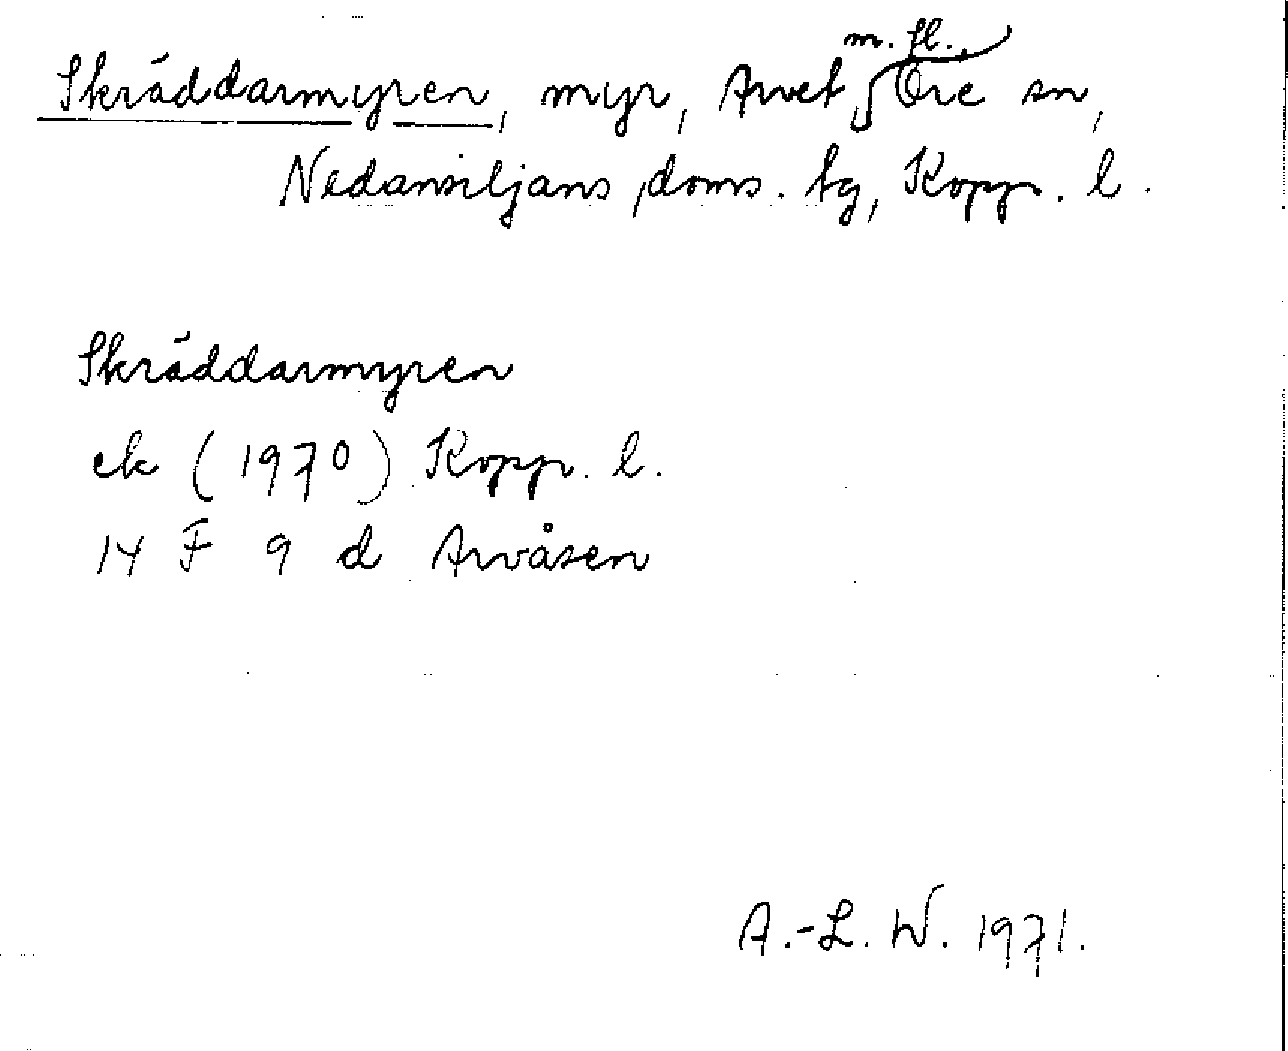 Skräddarmyren, myr, Arvet m. fl., Ore sn,
Nedansiljans doms. tg, Kopp. l.
Skräddarmyren
ek (1970) Kopp. l.
14 F 9 d Arvåsen
A.-L. W. 1971.